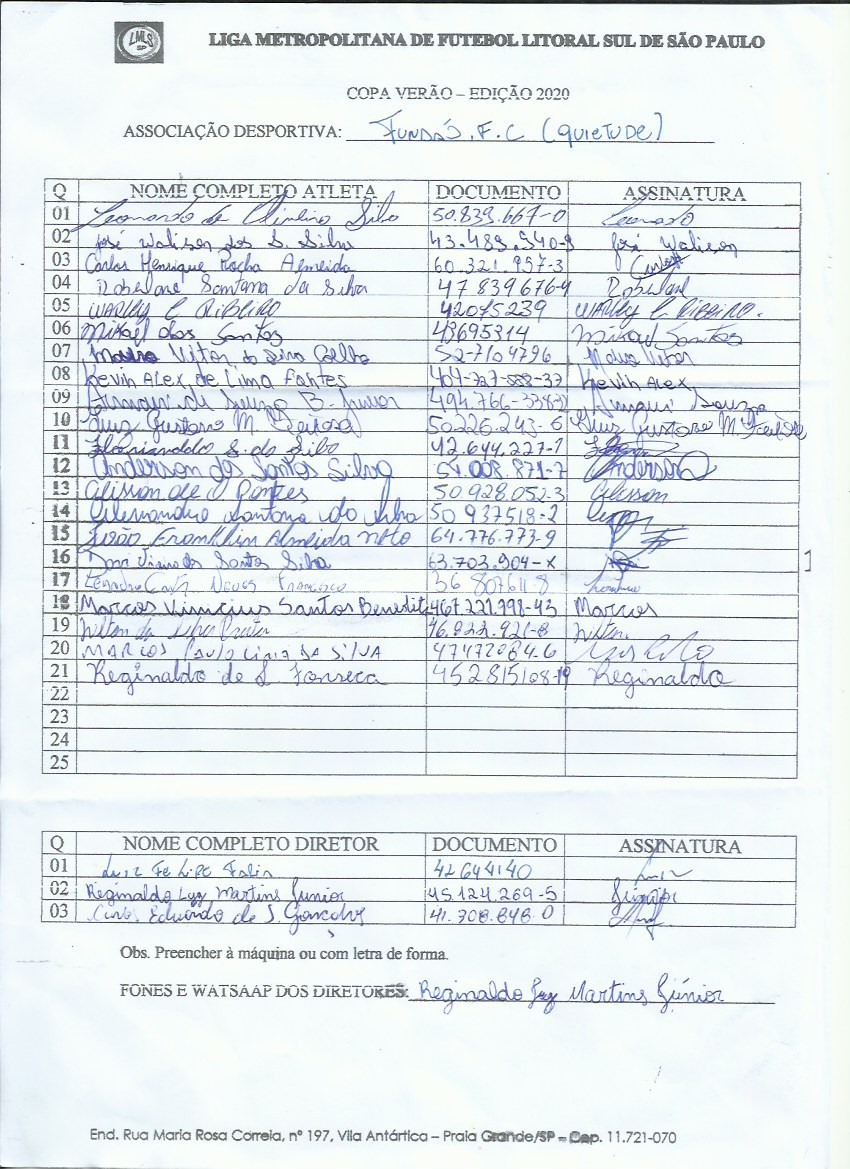 LMLS
SP
LIGA METROPOLITANA DE FUTEBOL LITORAL SUL DE SÃO PAULO
COPA VERÃO – EDIÇÃO 2020
ASSOCIAÇÃO DESPORTIVA: FUNDÃO.F.C (QUIETUDE)
Q NOME COMPLETO ATLETA DOCUMENTO ASSINATURA
01 Leonardo de Silva 50.839.667-0 Leonardo
02 José Walison dos S. Silva 43.489.940-9 José Walison
03 Carlos Henrique Rocha Almeida 60.321.957-3 Carlos
04 Robelane Santana da Silva 478396764
05 WARLEY C RIBEIRO 42075239 WARLEY C RIBEIRO.
06 Mikael dos Santos 43695314 Mikael Santos
07 Vitor da Silva Coelho 52-7104796 Vitor
08 Kevin Alex de Lima Fontes Kevin Alex
09 de Souza B. Junior Souza
10 Luiz Gustavo M. 50226.243-6 Luiz Gustavo M.
11 S. da Silva 42.644.227-1
12 Anderson dos Santos Silva 54.008.871-7 Anderson
13 Alisson de Pontes 50 928.052-3 Alisson
14 Santana da Silva 50 937518-2
15 João Franklin Almeida Neto 64.776.773-9
16 Davi Vieira dos Santos Silva 63.703.904-X
1
17 Leandro Neves Francisco 56 807611 8
18 Marcos Vinicius Santos Benedito 467.221.798-43 Marcos
19 Wilton da Silva 46.922.921-8 Wilton
20 MARCOS PAULO DA SILVA 47472084.6
21 Reginaldo de S Fonseca 452815108-19 Reginaldo
22
23
24
25
Q NOME COMPLETO DIRETOR DOCUMENTO ASSINATURA
01 Luiz Felipe 42644140 Luiz
02 Reginaldo Luz Martins Junior 45.124.269-5
03 Carlos Eduardo de S. Goncalves 41.708.848-0
Obs. Preencher à máquina ou com letra de forma.
FONES E WATSAAP DOS DIRETORES: Reginaldo Luz Martins Júnior
End. Rua Maria Rosa Correia, n° 197, Vila Antártica – Praia Grande/SP – Cep. 11.721-070